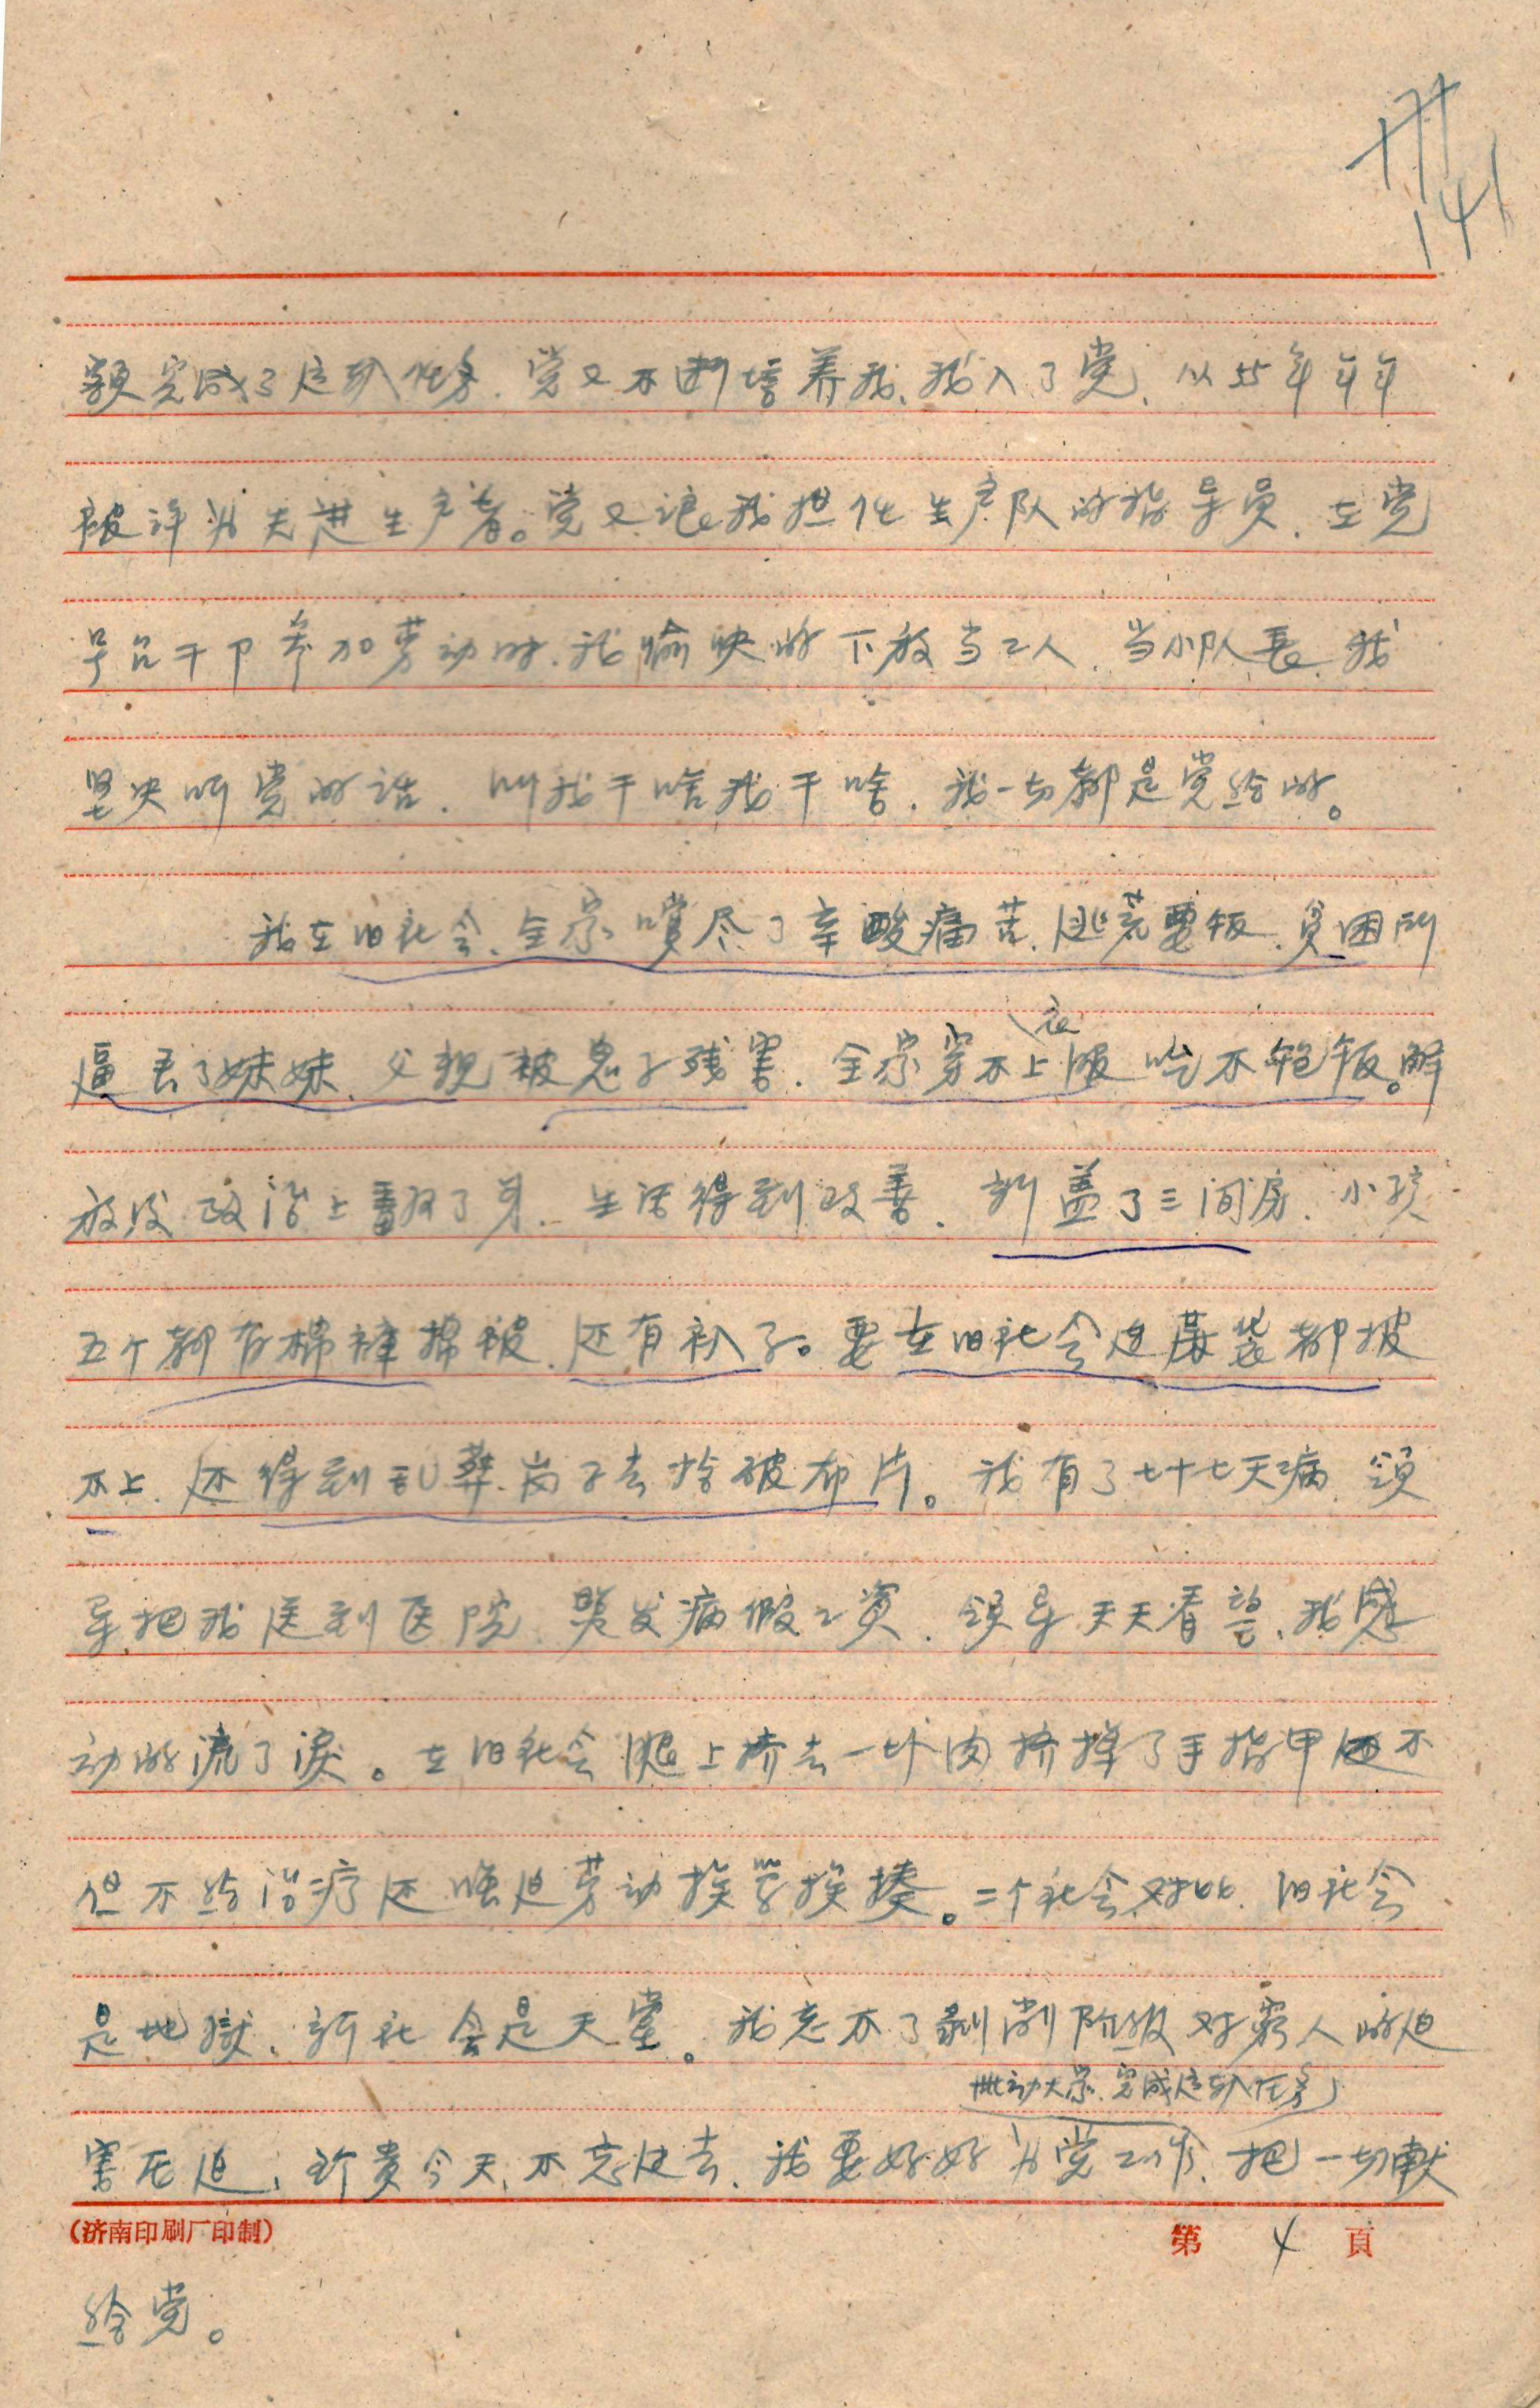 141
额完成了启动任务、党又不断培养我、我入了党、从55年年年
被评为先进生产者。党又让我担任生产队的指导员、在党
号召干卩参加劳动时、我愉快的下放当工人、当小队长、我
坚决听党的话、叫我干啥我干啥、我一切都是党给的。
我在旧社会、全家嚐尽了辛酸痛苦、逃荒要饭、贫困所
逼丢了妹妹、父親被鬼子残害、全家穿不上衣服吃不饱饭。解
放后政治上翻了身、生活得到改善、新盖了三间房、小孩
五个都有棉裤棉被、还有袄子。要在旧社会连麻袋都披
不上、还得到乱葬岗子去拾破布片。我有了七十七天病、领
导把我送到医院、照发病假工资、领导天天看望、我感
动的流了淚。在旧社会腿上挤去一块肉挤掉了手指甲还不
但不给治疗还强迫劳动挨骂挨揍。二个社会对比、旧社会
是地獄、新社会是天堂。我忘不了剥削阶级对穷人的迫
带动大家、完成启动任务
害压迫、珍贵今天、不忘过去、我要好好为党工作、把一切献
(济南印刷厂印制)
第 4 頁
给党。